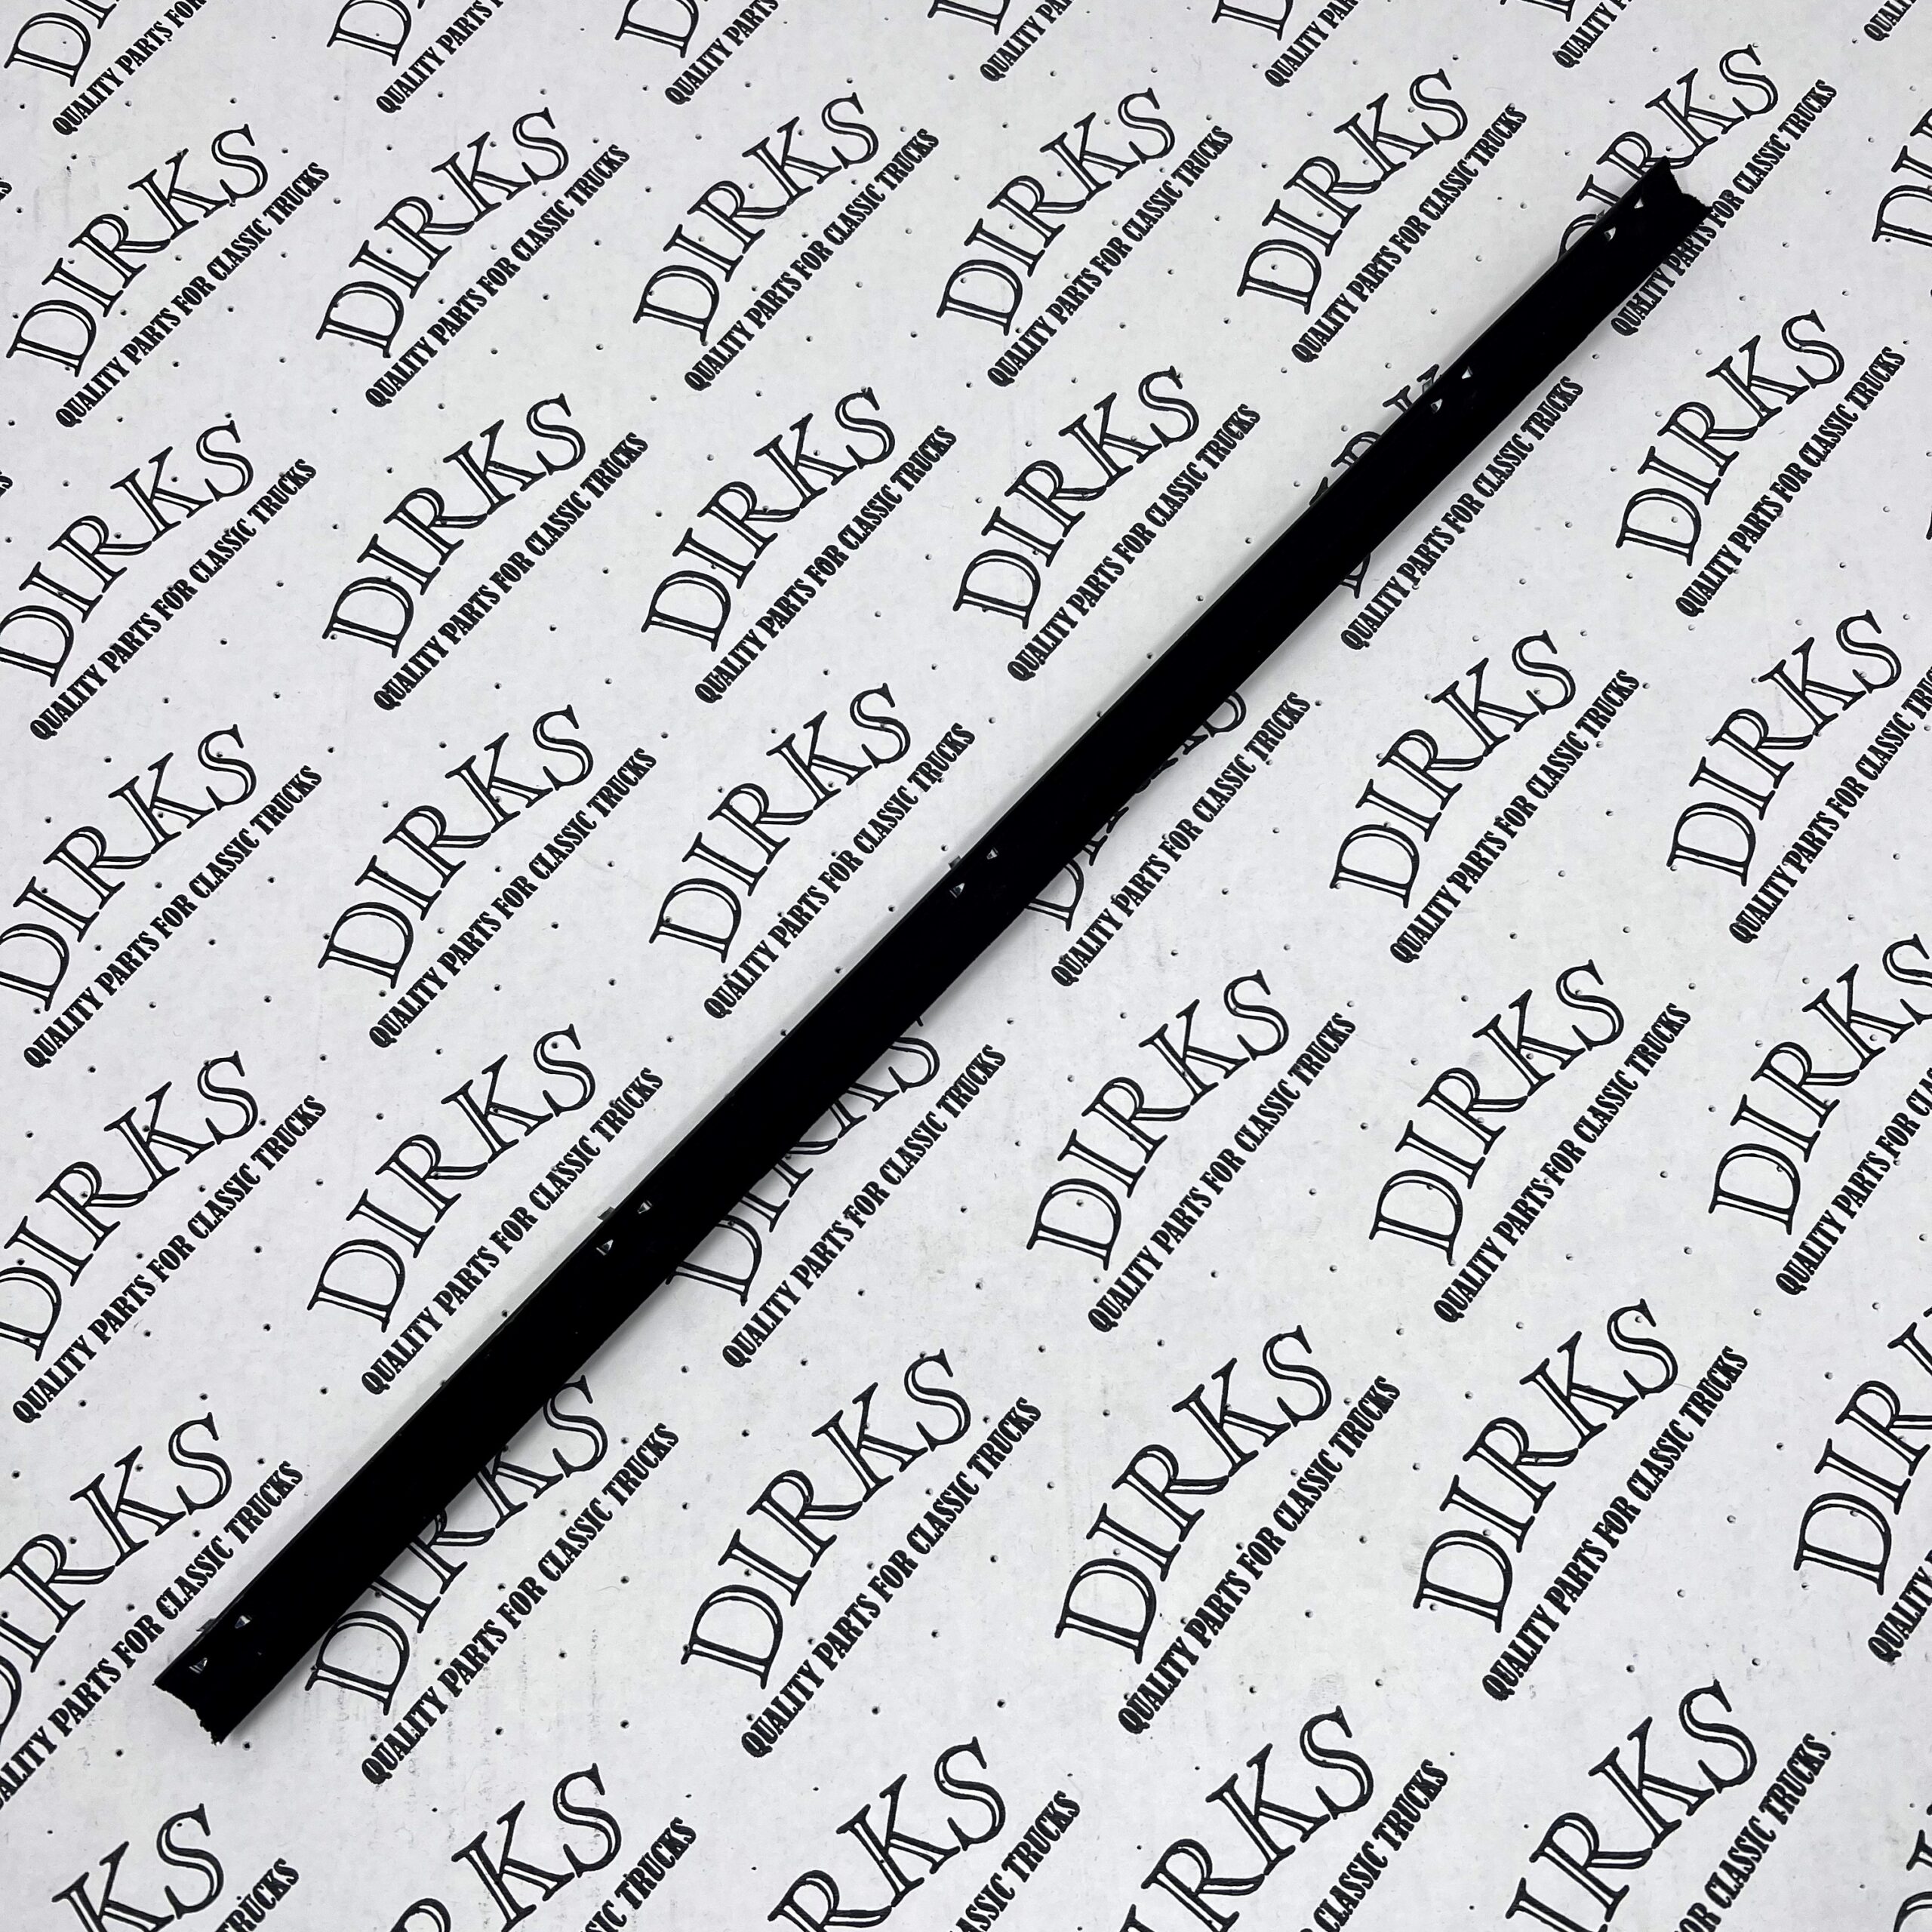 DIRKS
QUALITY PARTS FOR CLASSIC TRUCKS